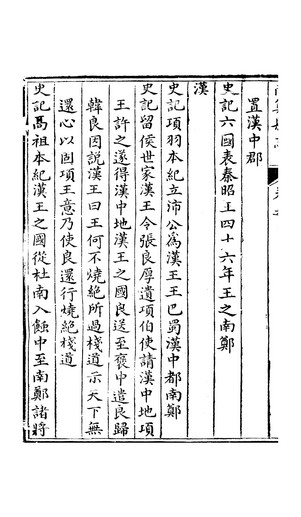 置漢中郡
史記六國表秦昭王四十六年王之南鄭
漢
史記項羽本紀立沛公為漢王王巴蜀漢中都南鄭
史記留侯世家漢王令張良厚遺項伯使請漢中地項
王許之遂得漢中地漢王之國良送至褒中遣良歸
韓良因說漢王曰王何不燒絕所過棧道示天下無
還心以固項王意乃使良還行燒絕棧道
史記高祖本紀漢王之國從杜南入蝕中至南鄭諸將